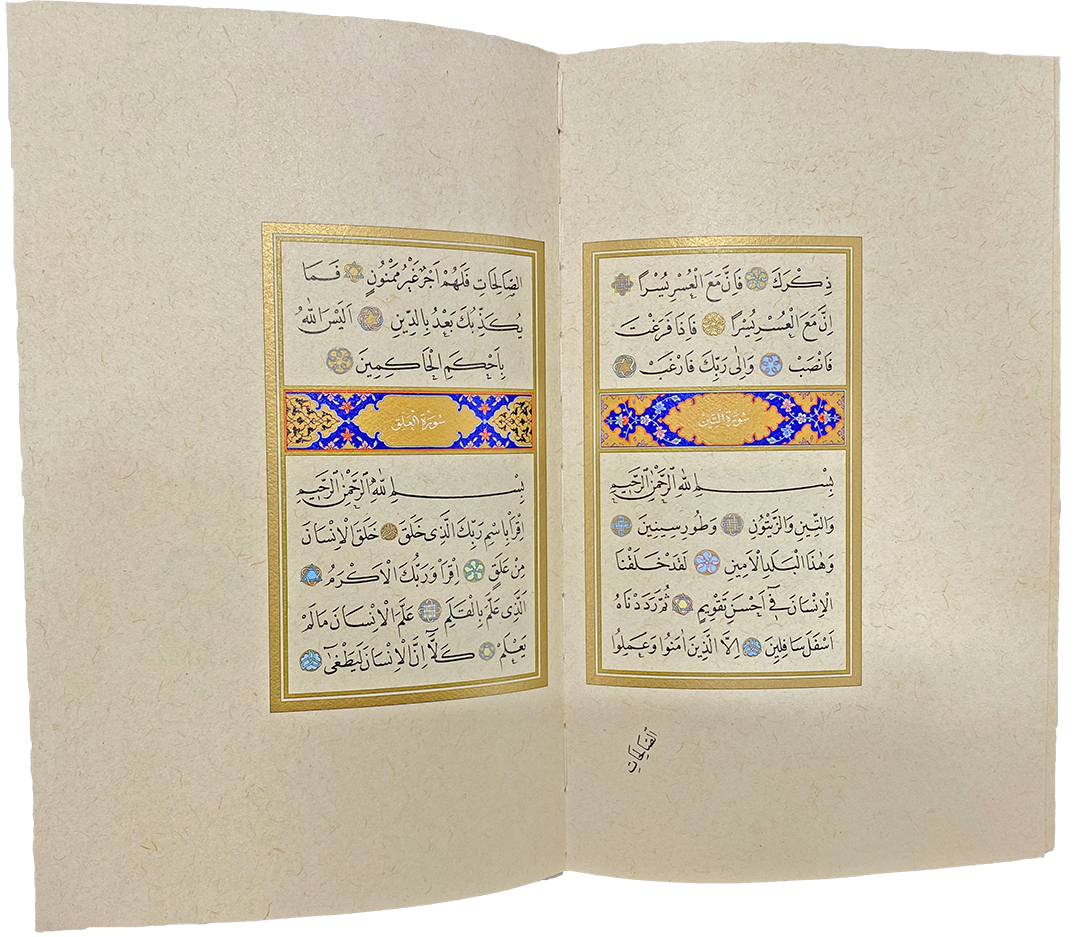 ذِكْرَكَ فَاِنَّ مَعَ الْعُسْرِ يُسْرًا
اِنَّ مَعَ الْعُسْرِ يُسْرًا فَاِذَا فَرَغْتَ
فَانْصَبْ وَاِلٰى رَبِّكَ فَارْغَبْ
سُورَةُ التِّينِ
بِسْمِ اللّٰهِ الرَّحْمٰنِ الرَّحِيمِ
وَالتِّينِ وَالزَّيْتُونِ وَطُورِ سِينِينَ
وَهٰذَا الْبَلَدِ الْاَمِينِ لَقَدْ خَلَقْنَا
الْاِنْسَانَ فِٓى اَحْسَنِ تَقْوِيمٍ ثُمَّ رَدَدْنَاهُ
اَسْفَلَ سَافِلِينَ اِلَّا الَّذِينَ اٰمَنُوا وَعَمِلُوا
الصَّالِحَاتِ
الصَّالِحَاتِ فَلَهُمْ اَجْرٌ غَيْرُ مَمْنُونٍ فَمَا
يُكَذِّبُكَ بَعْدُ بِالدِّينِ اَلَيْسَ اللّٰهُ
بِاَحْكَمِ الْحَاكِمِينَ
سُورَةُ الْعَلَقِ
بِسْمِ اللّٰهِ الرَّحْمٰنِ الرَّحِيمِ
اِقْرَاْ بِاسْمِ رَبِّكَ الَّذِى خَلَقَ خَلَقَ الْاِنْسَانَ
مِنْ عَلَقٍ اِقْرَاْ وَرَبُّكَ الْاَكْرَمُ
اَلَّذِى عَلَّمَ بِالْقَلَمِ عَلَّمَ الْاِنْسَانَ مَا لَمْ
يَعْلَمْ كَلَّٓا اِنَّ الْاِنْسَانَ لَيَطْغٰىٓ